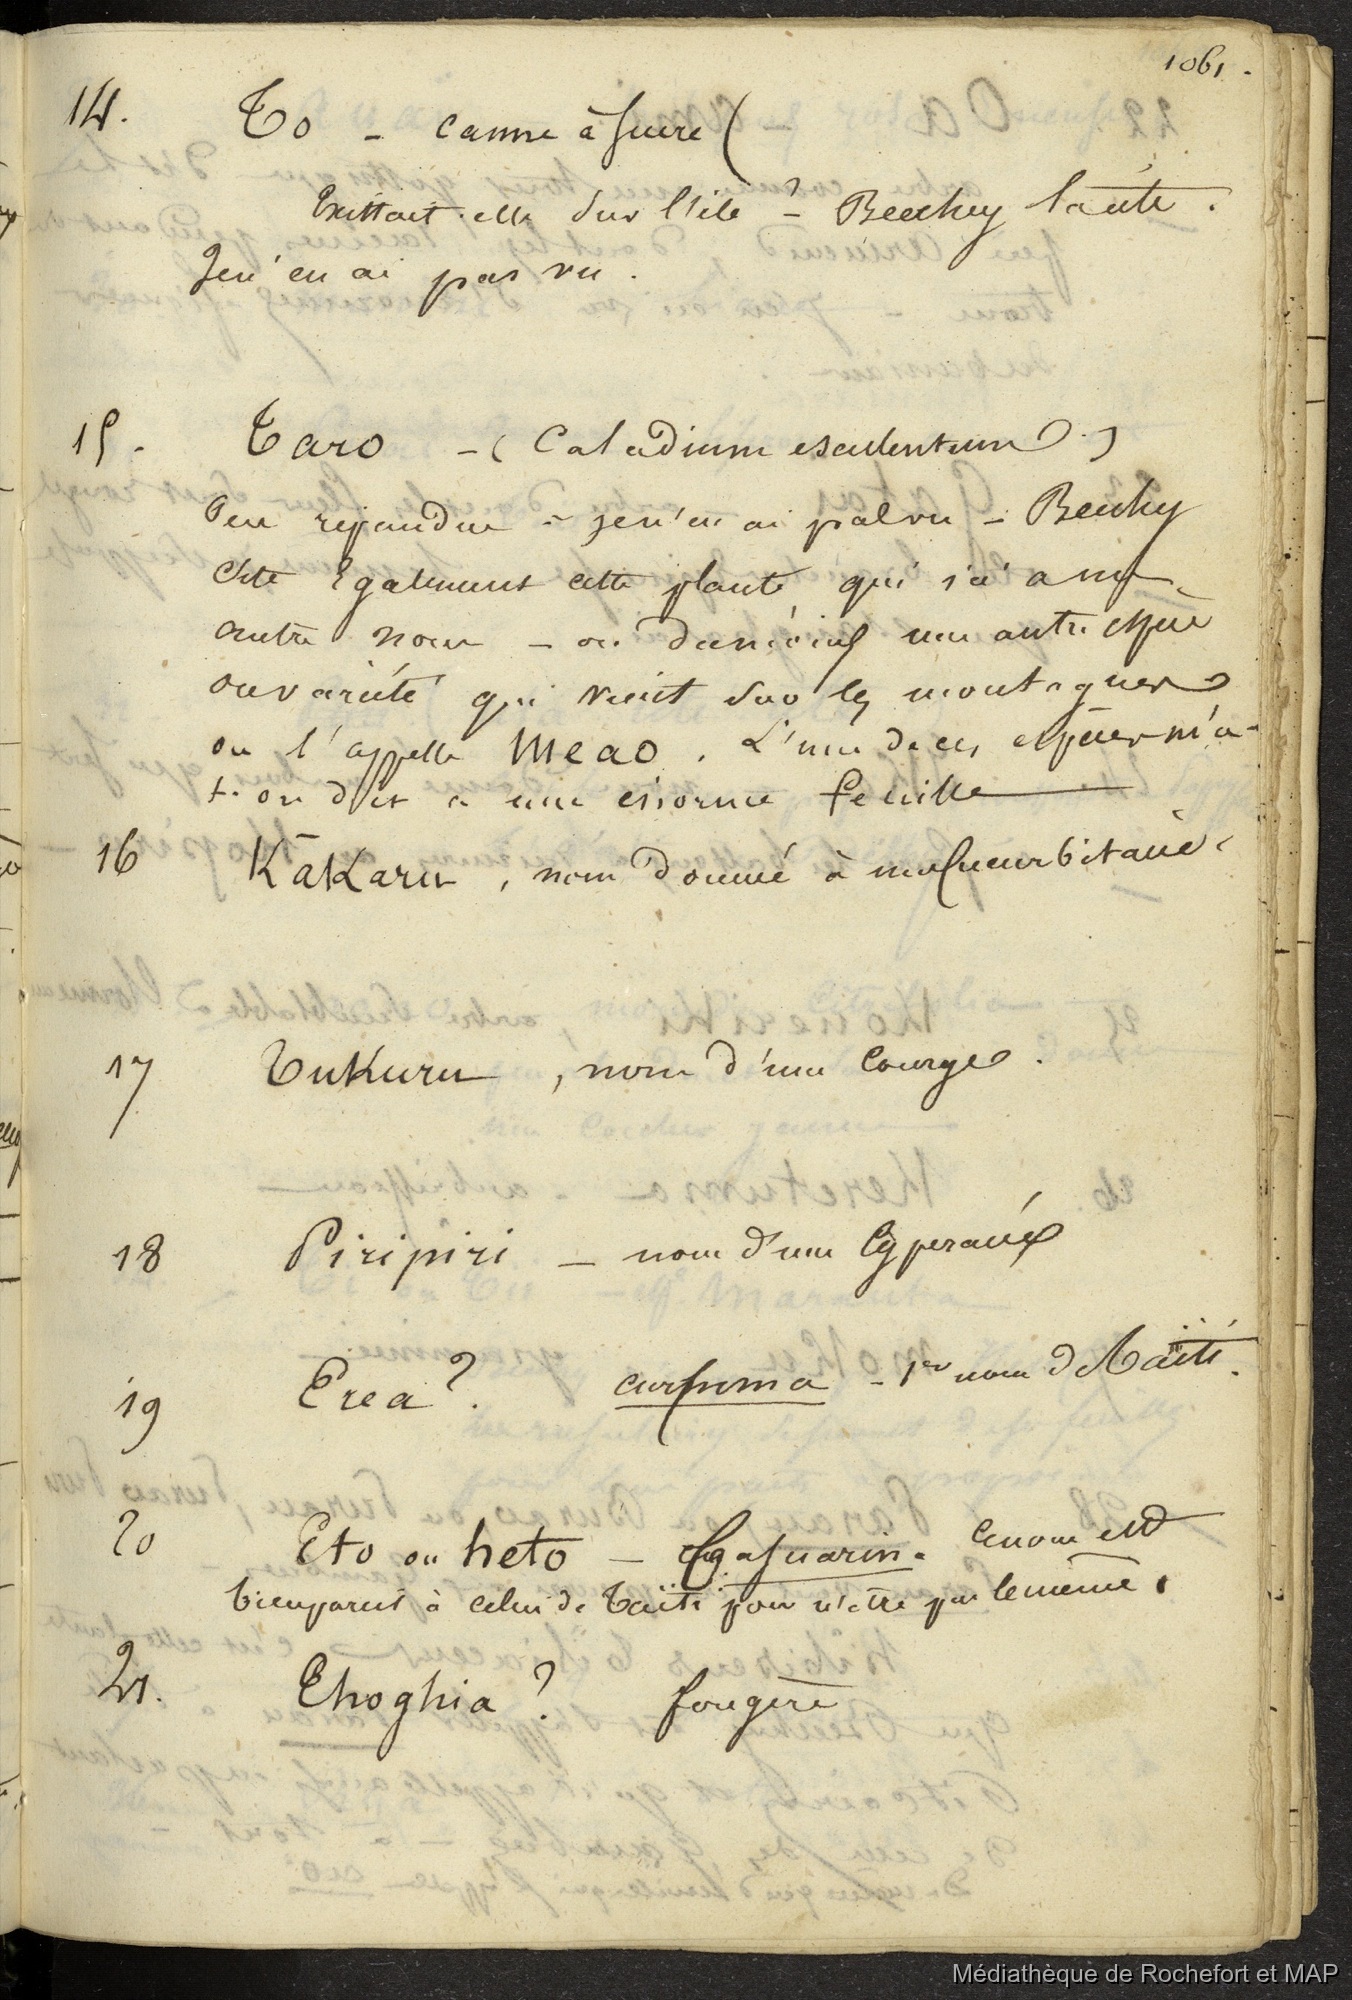 1061.
14. To - canne à sucre (
Existait elle sur l'île ? - Beechey la cite.
Je n'en ai pas vu.
15. Taro - (Caladium esculentum)
Peu répandu - je n'en ai pas vu - Beechey
cite également cette plante qui ici a un
autre nom - on dun une autre espèce
ou variété qui vient sur les montagnes
on l'appelle Meao. L'une de ces espèces m'a-
t-on dit a une énorme feuille
16 Kakaru, nom donné à une cucurbitacée.
17 Tukuru, nom d'une Courge.
18 Piripiri - nom d'une Cyperacée
19 Erea ? curcuma - 1er nom de Taïti.
20 Eto ou heto - Casuarina Ce nom est
bien pareil à celui de Taïti pour n'être pas le même.
21. Ehoghia ? fougère
Médiathèque de Rochefort et MAP